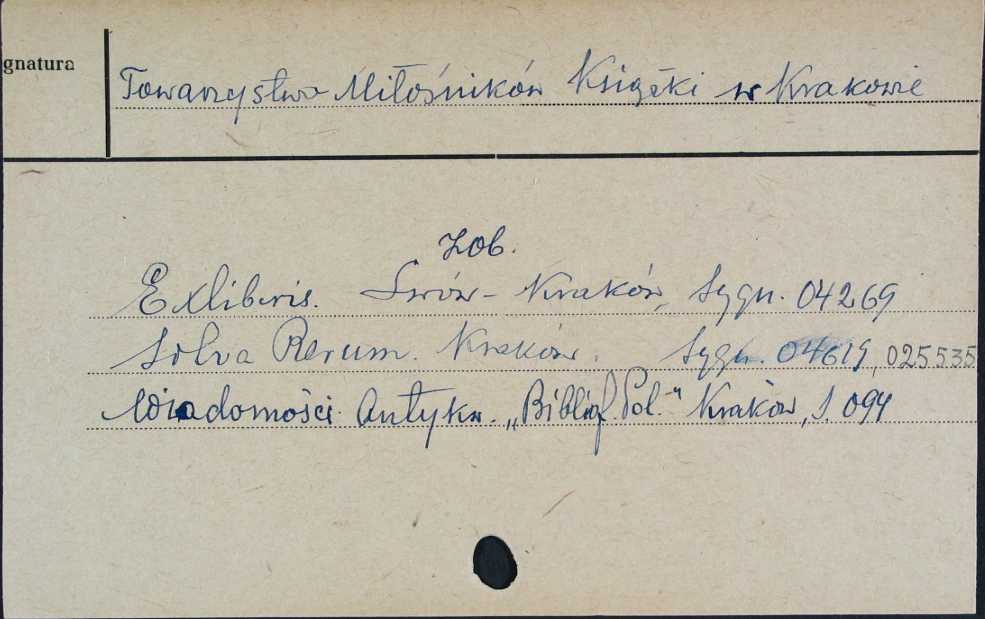 gnatura
Towarzystwo Miłośników Książki w Krakowie
Zob.
Exlibris. Lwów - Kraków, Sygn. 04269
Silva Rerum. Kraków. Sygn. 04619, 025535
Wiadomości Antykw. „Bibliof. Pol." Kraków, S. 094